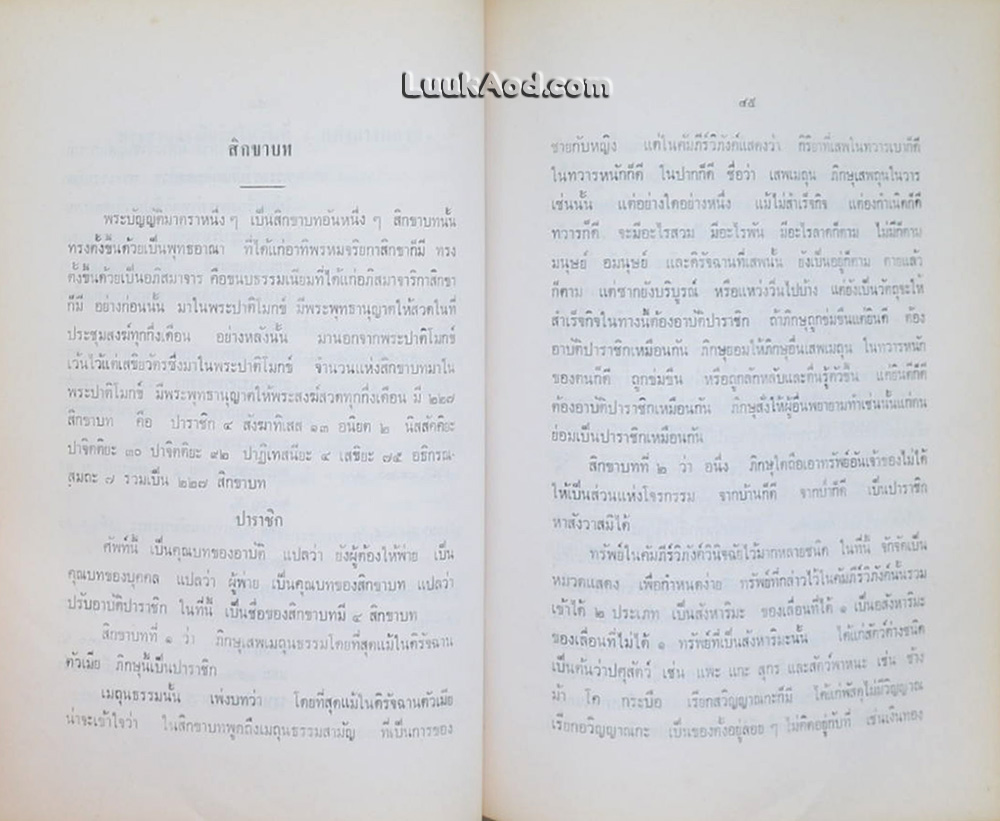 LuukAod.com
สิกขาบท
พระบัญญัติมาตราหนึ่ง ๆ เป็นสิกขาบทอันหนึ่ง ๆ สิกขาบทนั้น
ทรงตั้งขึ้นด้วยเป็นพุทธอาณา ที่ได้แก่อาทิพรหมจริยกาสิกขาก็มี ทรง
ตั้งขึ้นด้วยเป็นอภิสมาจาร คือขนบธรรมเนียมที่ได้แก่อภิสมาจาริกาสิกขา
ก็มี อย่างก่อนนั้น มาในพระปาติโมกข์ มีพระพุทธานุญาตให้สวดในที่
ประชุมสงฆ์ทุกกึ่งเดือน อย่างหลังนั้น มานอกจากพระปาติโมกข์
เว้นไว้แต่เสขิยวัตรซึ่งมาในพระปาติโมกข์ จำนวนแห่งสิกขาบทมาใน
พระปาติโมกข์ มีพระพุทธานุญาตให้พระสงฆ์สวดทุกกึ่งเดือน มี ๒๒๗
สิกขาบท คือ ปาราชิก ๔ สังฆาทิเสส ๑๓ อนิยต ๒ นิสสัคคิยะ
ปาจิตติยะ ๓๐ ปาจิตติยะ ๙๒ ปาฏิเทสนียะ ๔ เสขิยะ ๗๕ อธิกรณ-
สมถะ ๗ รวมเป็น ๒๒๗ สิกขาบท
ปาราชิก
ศัพท์นี้ เป็นคุณบทของอาบัติ แปลว่า ยังผู้ต้องให้พ่าย เป็น
คุณบทของบุคคล แปลว่า ผู้พ่าย เป็นคุณบทของสิกขาบท แปลว่า
ปรับอาบัติปาราชิก ในที่นี้ เป็นชื่อของสิกขาบทมี ๔ สิกขาบท
สิกขาบทที่ ๑ ว่า ภิกษุเสพเมถุนธรรมโดยที่สุดแม้ในดิรัจฉาน
ตัวเมีย ภิกษุนี้เป็นปาราชิก
เมถุนธรรมนั้น เพ่งบทว่า โดยที่สุดแม้ในดิรัจฉานตัวเมีย
น่าจะเข้าใจว่า ในสิกขาบทพูดถึงเมถุนธรรมสามัญ ที่เป็นการของ
๔๕
ชายกับหญิง แต่ในคัมภีร์วิภังค์แสดงว่า กิริยาที่เสพในทวารเบาก็ดี
ในทวารหนักก็ดี ในปากก็ดี ชื่อว่า เสพเมถุน ภิกษุเสพถุนในวาร
เช่นนั้น แต่อย่างใดอย่างหนึ่ง แม้ไม่สำเร็จกิจ แต่องกำเนิดก็ดี
ทวารก็ดี จะมีอะไรสวม มีอะไรพัน มีอะไรลาดก็ตาม ไม่มีก็ตาม
มนุษย์ อมนุษย์ และดิรัจฉานที่เสพนั้น ยังเป็นอยู่ก็ตาม ตายแล้ว
ก็ตาม แต่ซากยังบริบูรณ์ หรือแหว่งวิ่นไปบ้าง แต่ยังเป็นวัตถุจะให้
สำเร็จกิจในทางนี้ต้องอาบัติปาราชิก ถ้าภิกษุถูกข่มขืนแต่ยินดี ต้อง
อาบัติปาราชิกเหมือนกัน ภิกษุยอมให้ภิกษุอื่นเสพเมถุน ในทวารหนัก
ของตนก็ดี ถูกข่มขืน หรือถูกลักหลับและตื่นรู้ตัวขึ้น แต่ยินดีก็ดี
ต้องอาบัติปาราชิกเหมือนกัน ภิกษุสั่งให้ผู้อื่นพยายามทำเช่นนั้นแก่ตน
ย่อมเป็นปาราชิกเหมือนกัน
สิกขาบทที่ ๒ ว่า อนึ่ง ภิกษุใดถือเอาทรัพย์อันเจ้าของไม่ได้
ให้เป็นส่วนแห่งโจรกรรม จากบ้านก็ดี จากป่าก็ดี เป็นปาราชิก
หาสังวาสมิได้
ทรัพย์ในคัมภีร์วิภังค์วินิจฉัยไว้มากหลายชนิด ในที่นี้ จักจัดเป็น
หมวดแสดง เพื่อกำหนดง่าย ทรัพย์ที่กล่าวไว้ในคัมภีร์วิภังค์นั้นรวม
เข้าได้ ๒ ประเภท เป็นสังหาริมะ ของเลื่อนที่ได้ ๑ เป็นอสังหาริมะ
ของเลื่อนที่ไม่ได้ ๑ ทรัพย์ที่เป็นสังหาริมะนั้น ได้แก่สัตว์ต่างชนิด
เป็นต้นว่าปศุสัตว์ เช่น แพะ แกะ สุกร และสัตว์พาหนะ เช่น ช้าง
ม้า โค กระบือ เรียกสวิญญาณกะก็มี ได้แก่พัสดุไม่มีวิญญาณ
เรียกอวิญญาณกะ เป็นของตั้งอยู่ลอย ๆ ไม่ติดอยู่กับที่ เช่นเงินทอง